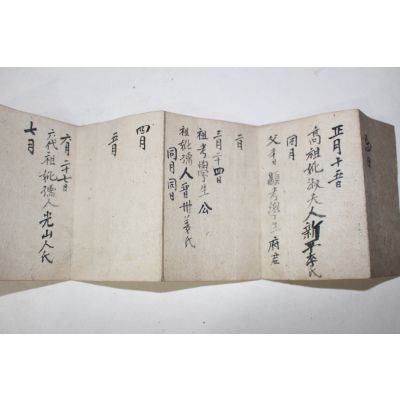 正月十五日
高祖妣淑夫人新平李氏
同月
顯考學生府君
二月
三月二十四日
祖考學生公
祖妣孺人晋州姜氏
同月同日
四月
五月
六月二十七日
六代祖妣孺人光山人氏
七月